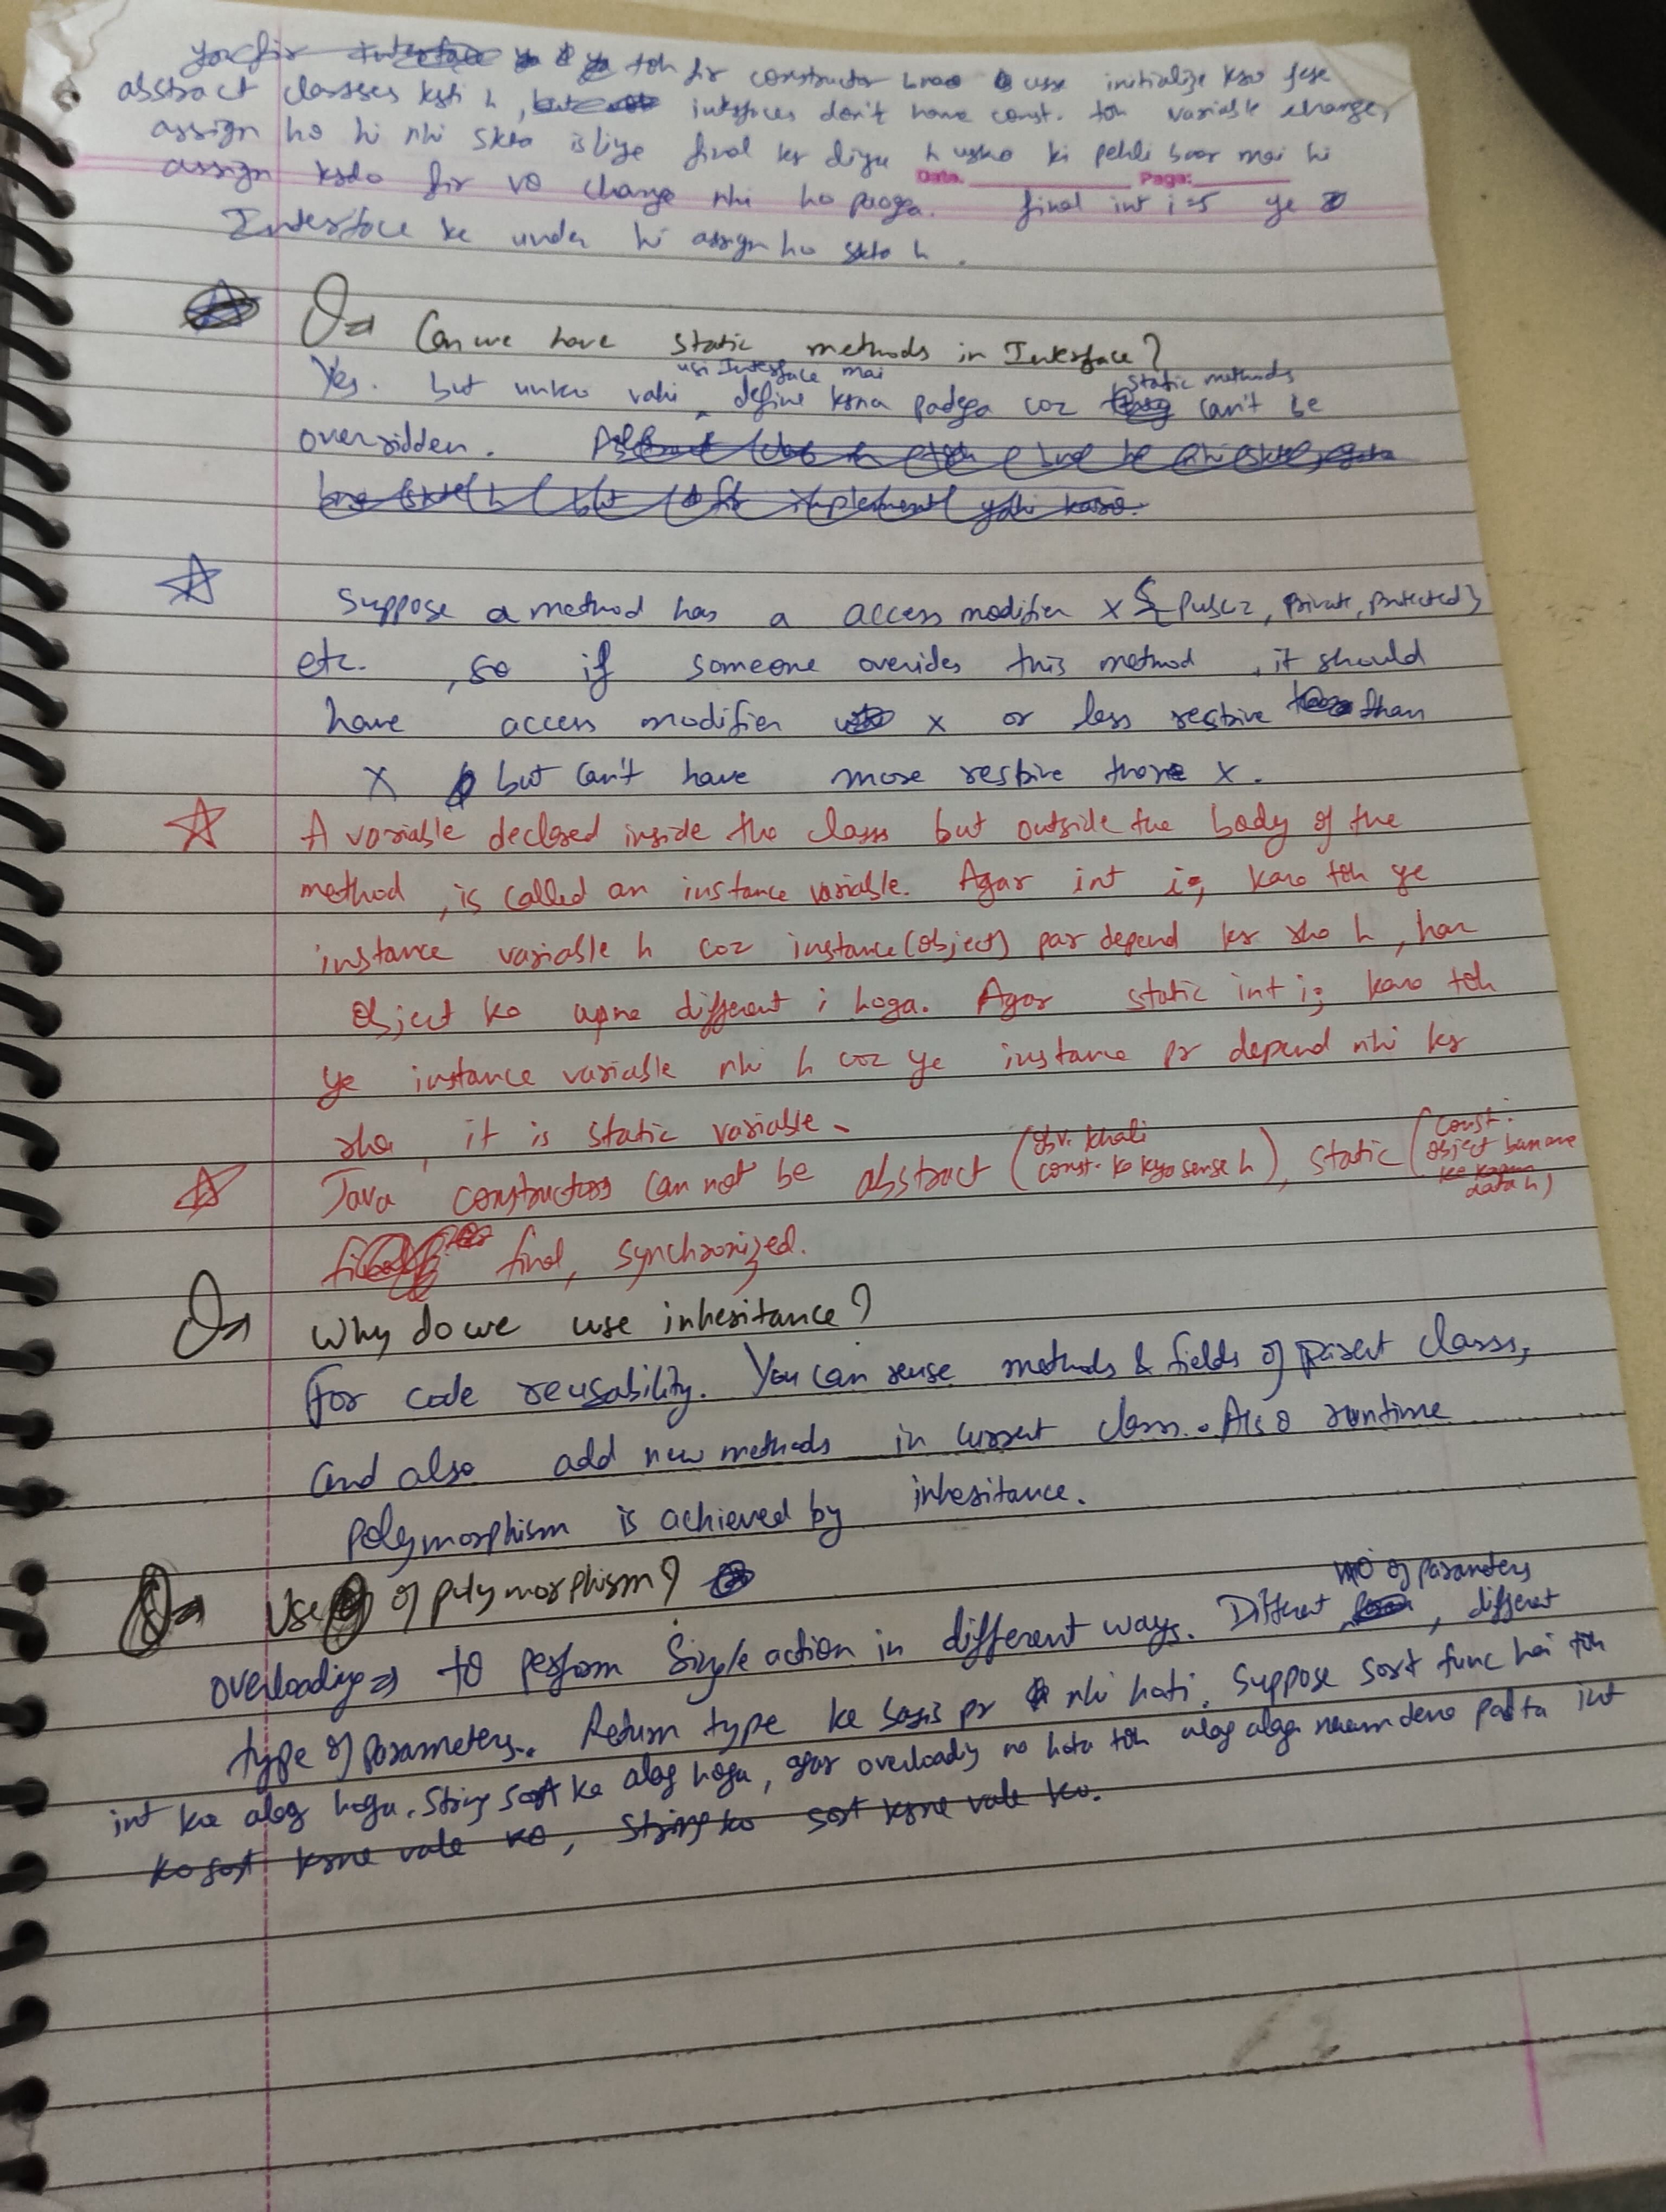 toh fir constructor bnao usse initialize kro jese
abstract classes krti h, interfaces don't have const. toh variable change,
assign ho hi nhi skta isliye final kr diya h usko ki pehli baar mai hi
assign krdo fir vo change nhi ho paega. final int i=5 ye
Date. Page:
Interface ke under hi assign ho skta h.
Q→ Can we have static methods in Interface?
Yes. but unko vahi usi Interface mai define krna padega coz static methods can't be
overridden.
implement yahi karo.
Suppose a method has a access modifier x {public, private, protected}
etc. , so if someone overides this method , it should
have access modifier x or less restive than
X but can't have more restive than x.
A variable declared inside the class but outside the body of the
method, is called an instance variable. Agar int i; karo toh ye
instance variable h coz instance(object) par depend kr rha h, har
object ka apna different i hoga. Agar static int i; karo toh
ye instance variable nhi h coz ye instance pr depend nhi kr
rha, it is static variable.
Java constructors can not be abstract (obv. khali const. ka kya sense h), static (const. object banane ke kaam aata h)
final, synchronized.
Q→ Why do we use inheritance?
For code reusability. You can reuse methods & fields of parent class,
and also add new methods in current class. Also runtime
polymorphism is achieved by inheritance.
Q→ Use of polymorphism?
overloading → to perform single action in different ways. Different no of parameters, different
type of parameters. Return type ke basis pr nhi hoti. Suppose sort func hai toh
int ka alag hoga. String sort ka alag hoga, agar overloading na hota toh alag alag naam dena padta int
ko sort krne vale ko, String ko sort krne vale ko.